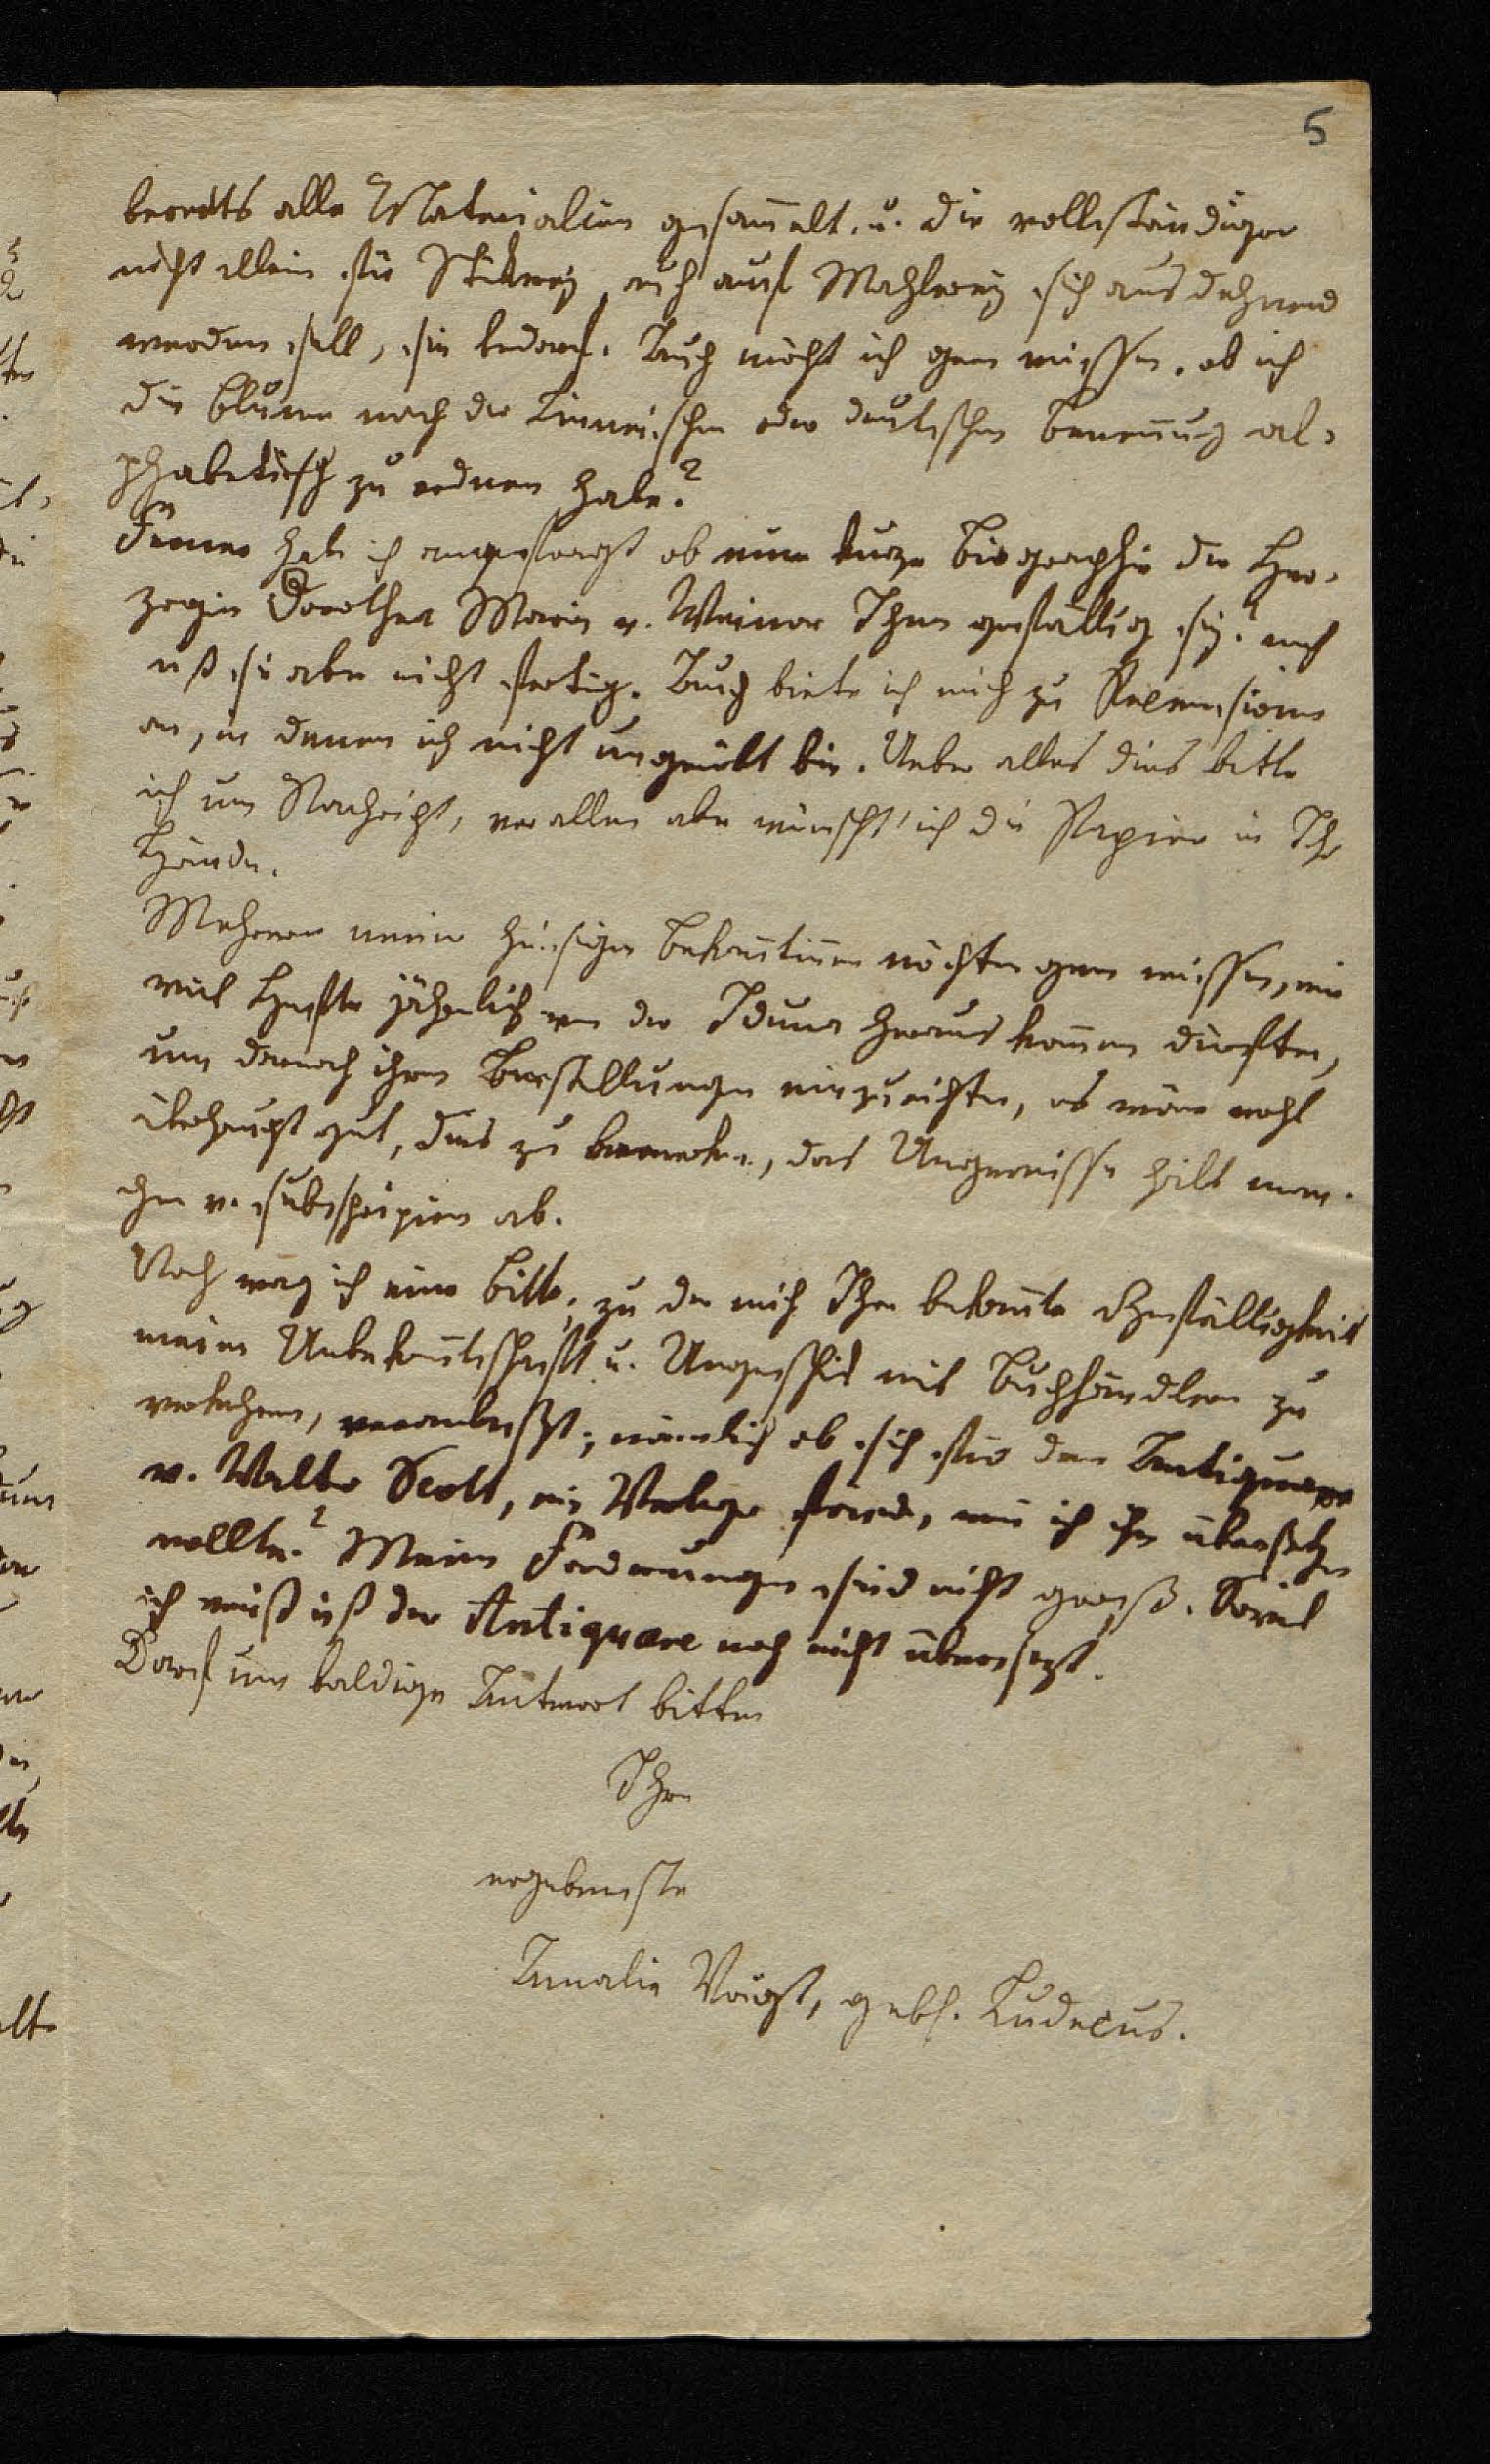 5
bereits alle Materialien gesam̄elt, u. die vollständiger
nicht allein für Stickerei, auch auf Mahlerei sich ausdehnend
werden soll, sie bedarf. Auch möcht ich gern wissen, ob ich
die Blumen nach der Linnei'schen oder deutschen Benen̄ung al-
phabetisch zu ordnen habe?
Ferner hab ich angefragt ob eine kurze Biographie der Her-
zogin Dorothea Maria v. Weimar Ihnen gefällig sey? noch
ist sie aber nicht fertig. Auch biete ich mich zu Recensionen
an, in denen ich nicht ungeübt bin. Ueber alles dies bitte
ich um Nachricht, vor allem aber wünscht' ich die Papiere in Ihre
Hände.
Mehrere meiner hiesigen Bekan̄tinnen möchten gern wissen, wie
viel Hefte jährlich von der Iduna herauskom̄en dürften,
um darnach ihre Bestellungen einzurichten, es wäre wohl
überhaupt gut, dies zu bemerken, das Ungewisse hält man-
chen v. subskripiren ab.
Noch wag ich eine Bitte, zu der mich Ihre bekan̄te Gefälligkeit
meine Unbekan̄tschaft u. Ungeschick mit Buchhändlern zu
verkehren, veranlaßt; nämlich ob sich für den Antiquare
v. Walter Scott, ein Verleger fände, wen̄ ich ihn übersetzen
wollte? Meine Forderungen sind nicht groß. Soviel
ich weiß ist der Antiquare noch nicht übersezt.
Darf um baldige Antwort bitten
Ihre
ergebenste
Amalie Voigt, gebh. Ludecus.